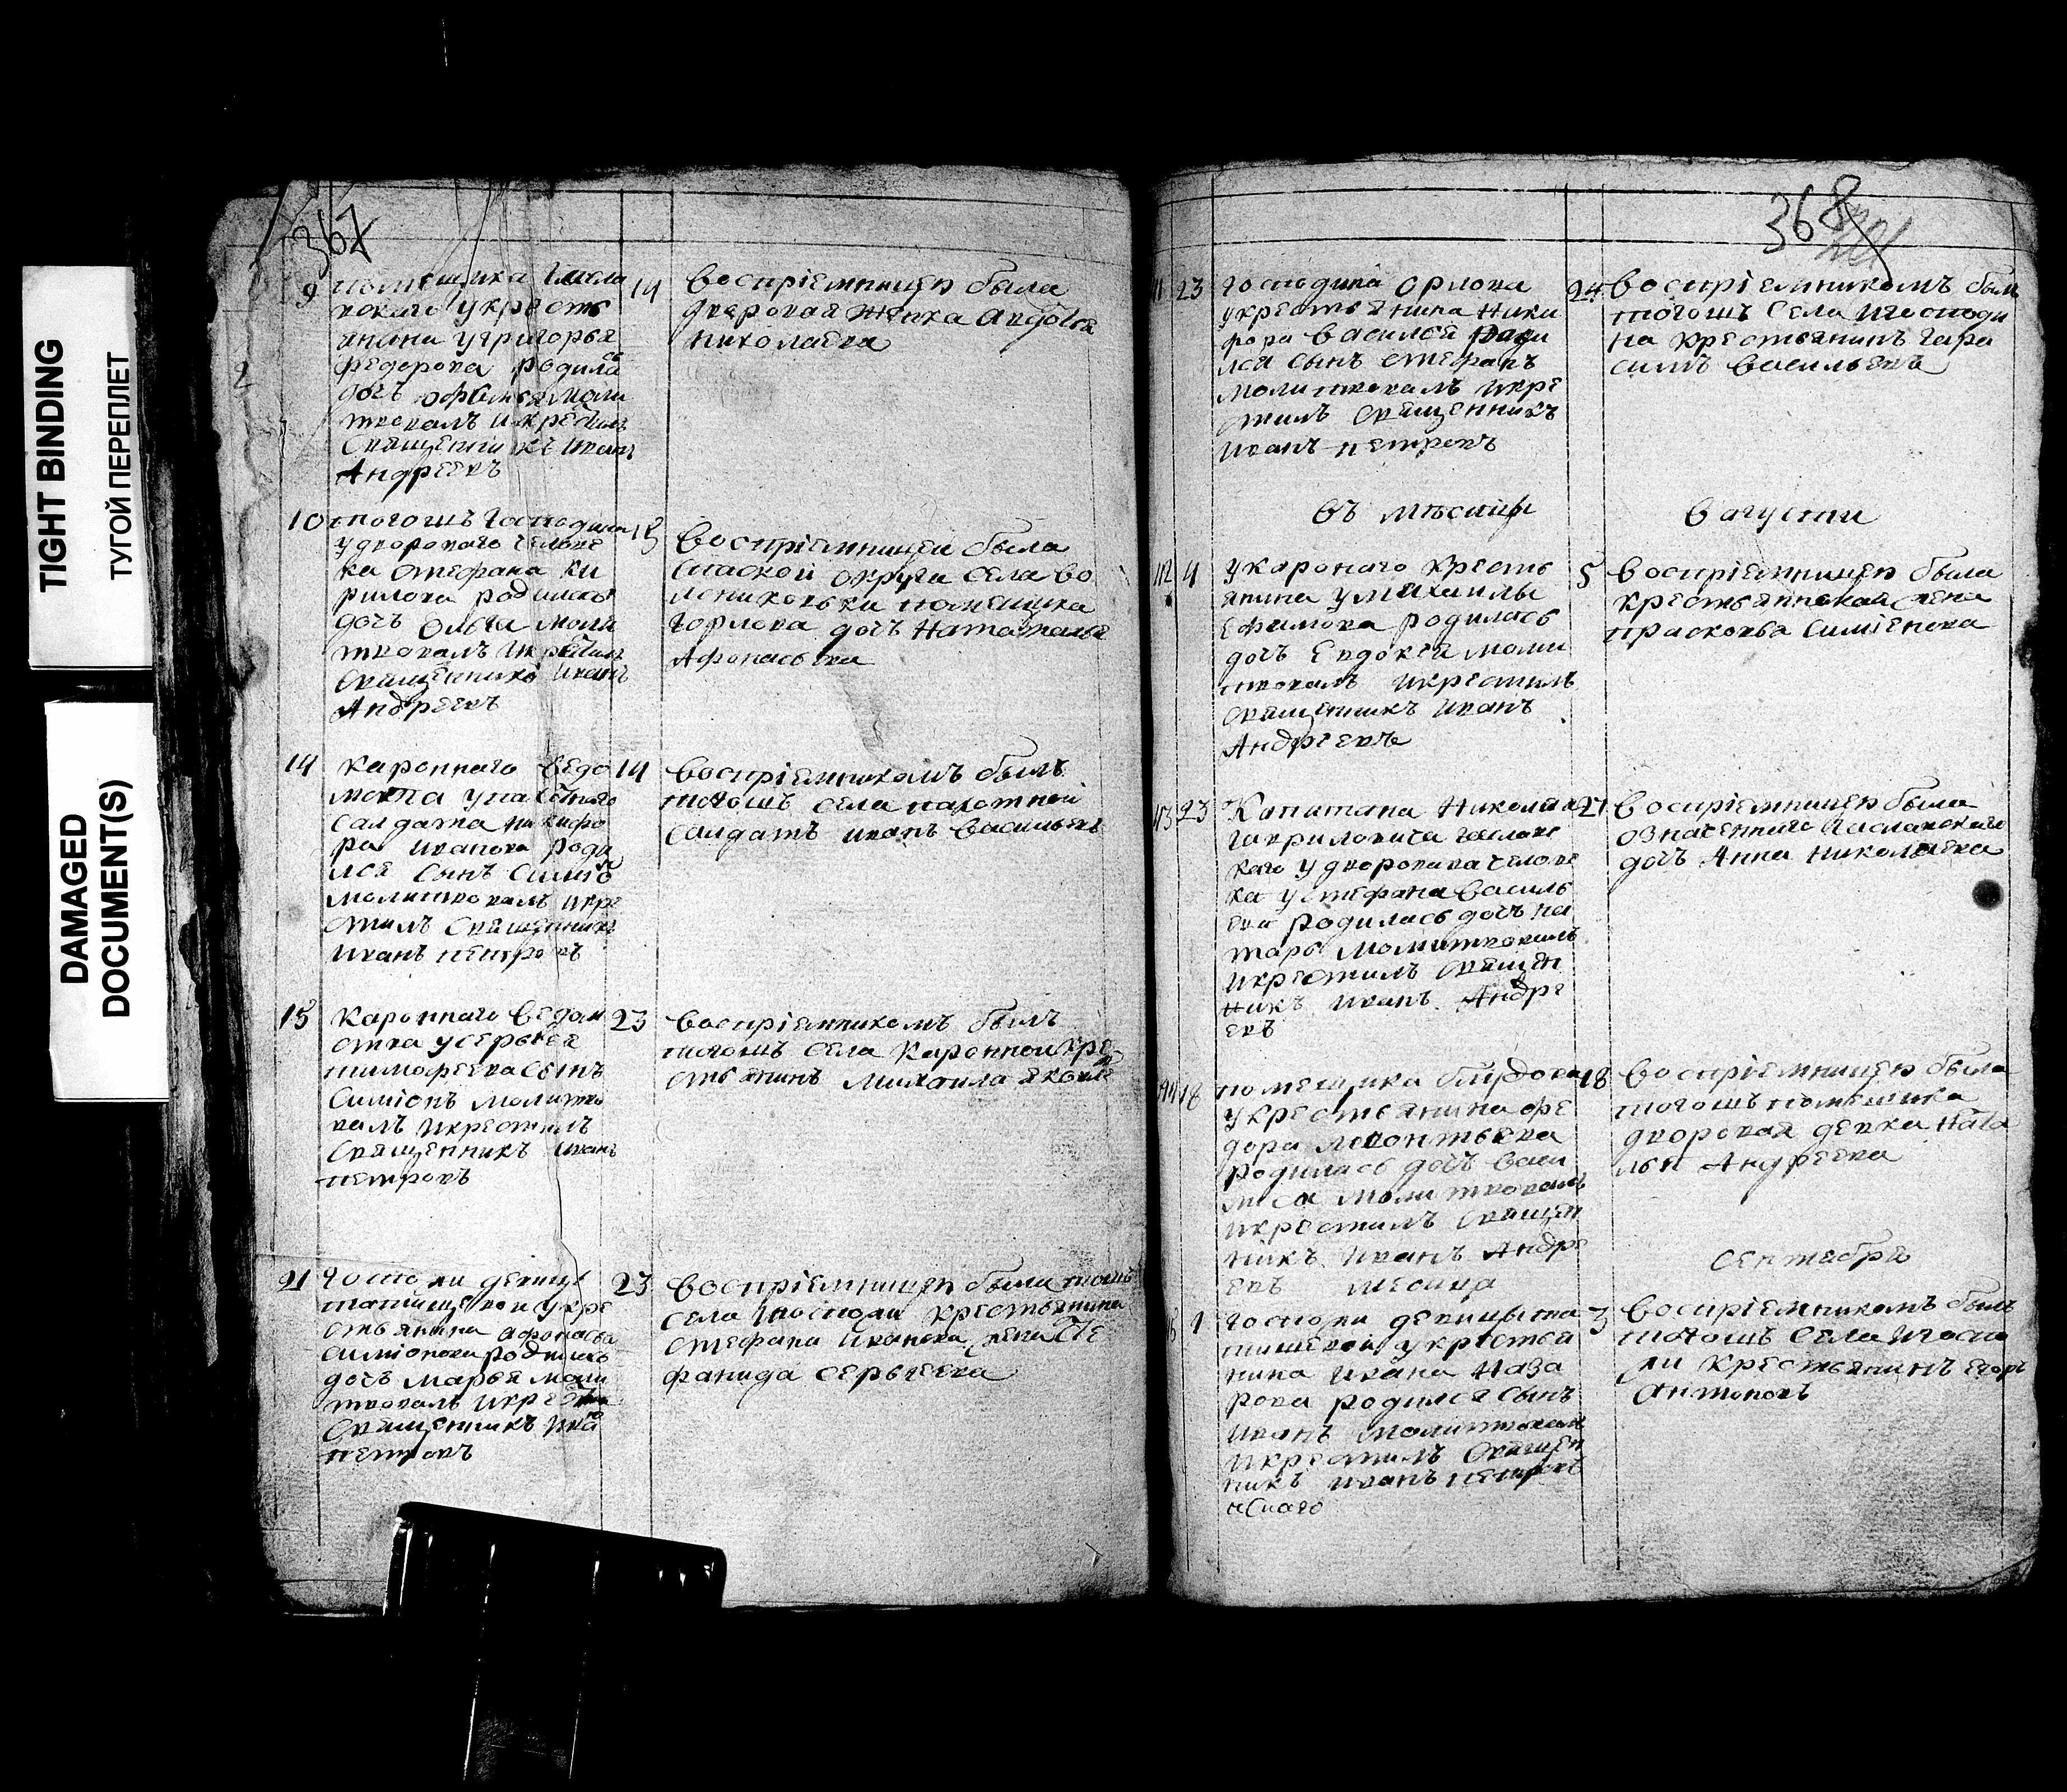 TIGHT BINDING
ТУГОЙ ПЕРЕПЛЕТ
DAMAGED
DOCUMENT(S)
367
9 помещика
у кресть
янина у григорья
федорова родила
дочь моли
твовалъ и крестилъ
священникъ иванъ
Андреевъ
14 воспріемницею была
дворовая женка авдотья
николаева
10 тогошъ господина
у дворового челове
ка стефана ки
рилова родилась
дочь ольга моли
твовалъ и крестилъ
священникъ иванъ
Андреевъ
15 воспріемницею была
спаской округи села
помещика
горлова дочь Наталья
Афонасьева
14 каронного ведо
мства у пахотного
салдата никифо
ра иванова роди
лся сынъ симіонъ
молитвовалъ и кре
стилъ священникъ
иванъ петровъ
14 воспріемникомъ былъ
тогошъ села пахотной
салдатъ иванъ васильевъ
15 каронного ведом
ства у сергея
тимофеева сынъ
симіонъ молитво
валъ и крестилъ
священникъ иванъ
петровъ
23 воспріемникомъ былъ
тогошъ села каронной кре
стьянинъ михаила яковле
21 госпожи девицы
татищевой у кре
стьянина афонасья
симіонова родилась
дочь марья моли
твовалъ и крестилъ
священникъ ива
петровъ
23 воспріемницею была тогошъ
села и госпожи крестьянина
стефана иванова жена сте
фанида сергеева
368
11 23 господина орлова
у крестьянина ники
фора васильева роди
лся сынъ стефанъ
молитвовалъ и кре
стилъ священникъ
иванъ петровъ
24 воспріемникомъ былъ
тогошъ села и господи
на крестьянинъ гара
симъ васильевъ
въ месяце
вагусти
12 4 у каронаго кресть
янина у михаилы
ефимова родилась
дочь евдокея моли
твовалъ и крестилъ
священникъ иванъ
Андреевъ
5 воспріемницею была
крестьянская жена
прасковья симіенова
13 23 Капитана Николая
гавриловича
у дворовова челове
ка у стефана василь
ева родилась дочь на
талья молитвовалъ
и крестилъ священ
никъ иванъ Андре
евъ
воспріемницею была
означенного
дочь Анна николаева
18 помещика блудова
у крестьянина фе
дора леонтьева
родилась дочь васи
лиса молитвовалъ
и крестилъ священ
никъ иванъ Андре
евъ месяца
18 воспріемницею была
тогошъ помещика
дворовая девка ната
лья Андреева
сентября
1 госпожи девицы та
тищевой у крестья
нина ивана наза
рова родился сынъ
иванъ молитвовалъ
и крестилъ священ
никъ иванъ петровъ
3 воспріемникомъ былъ
тогошъ села и госпо
жи крестьянинъ егоръ
антоновъ